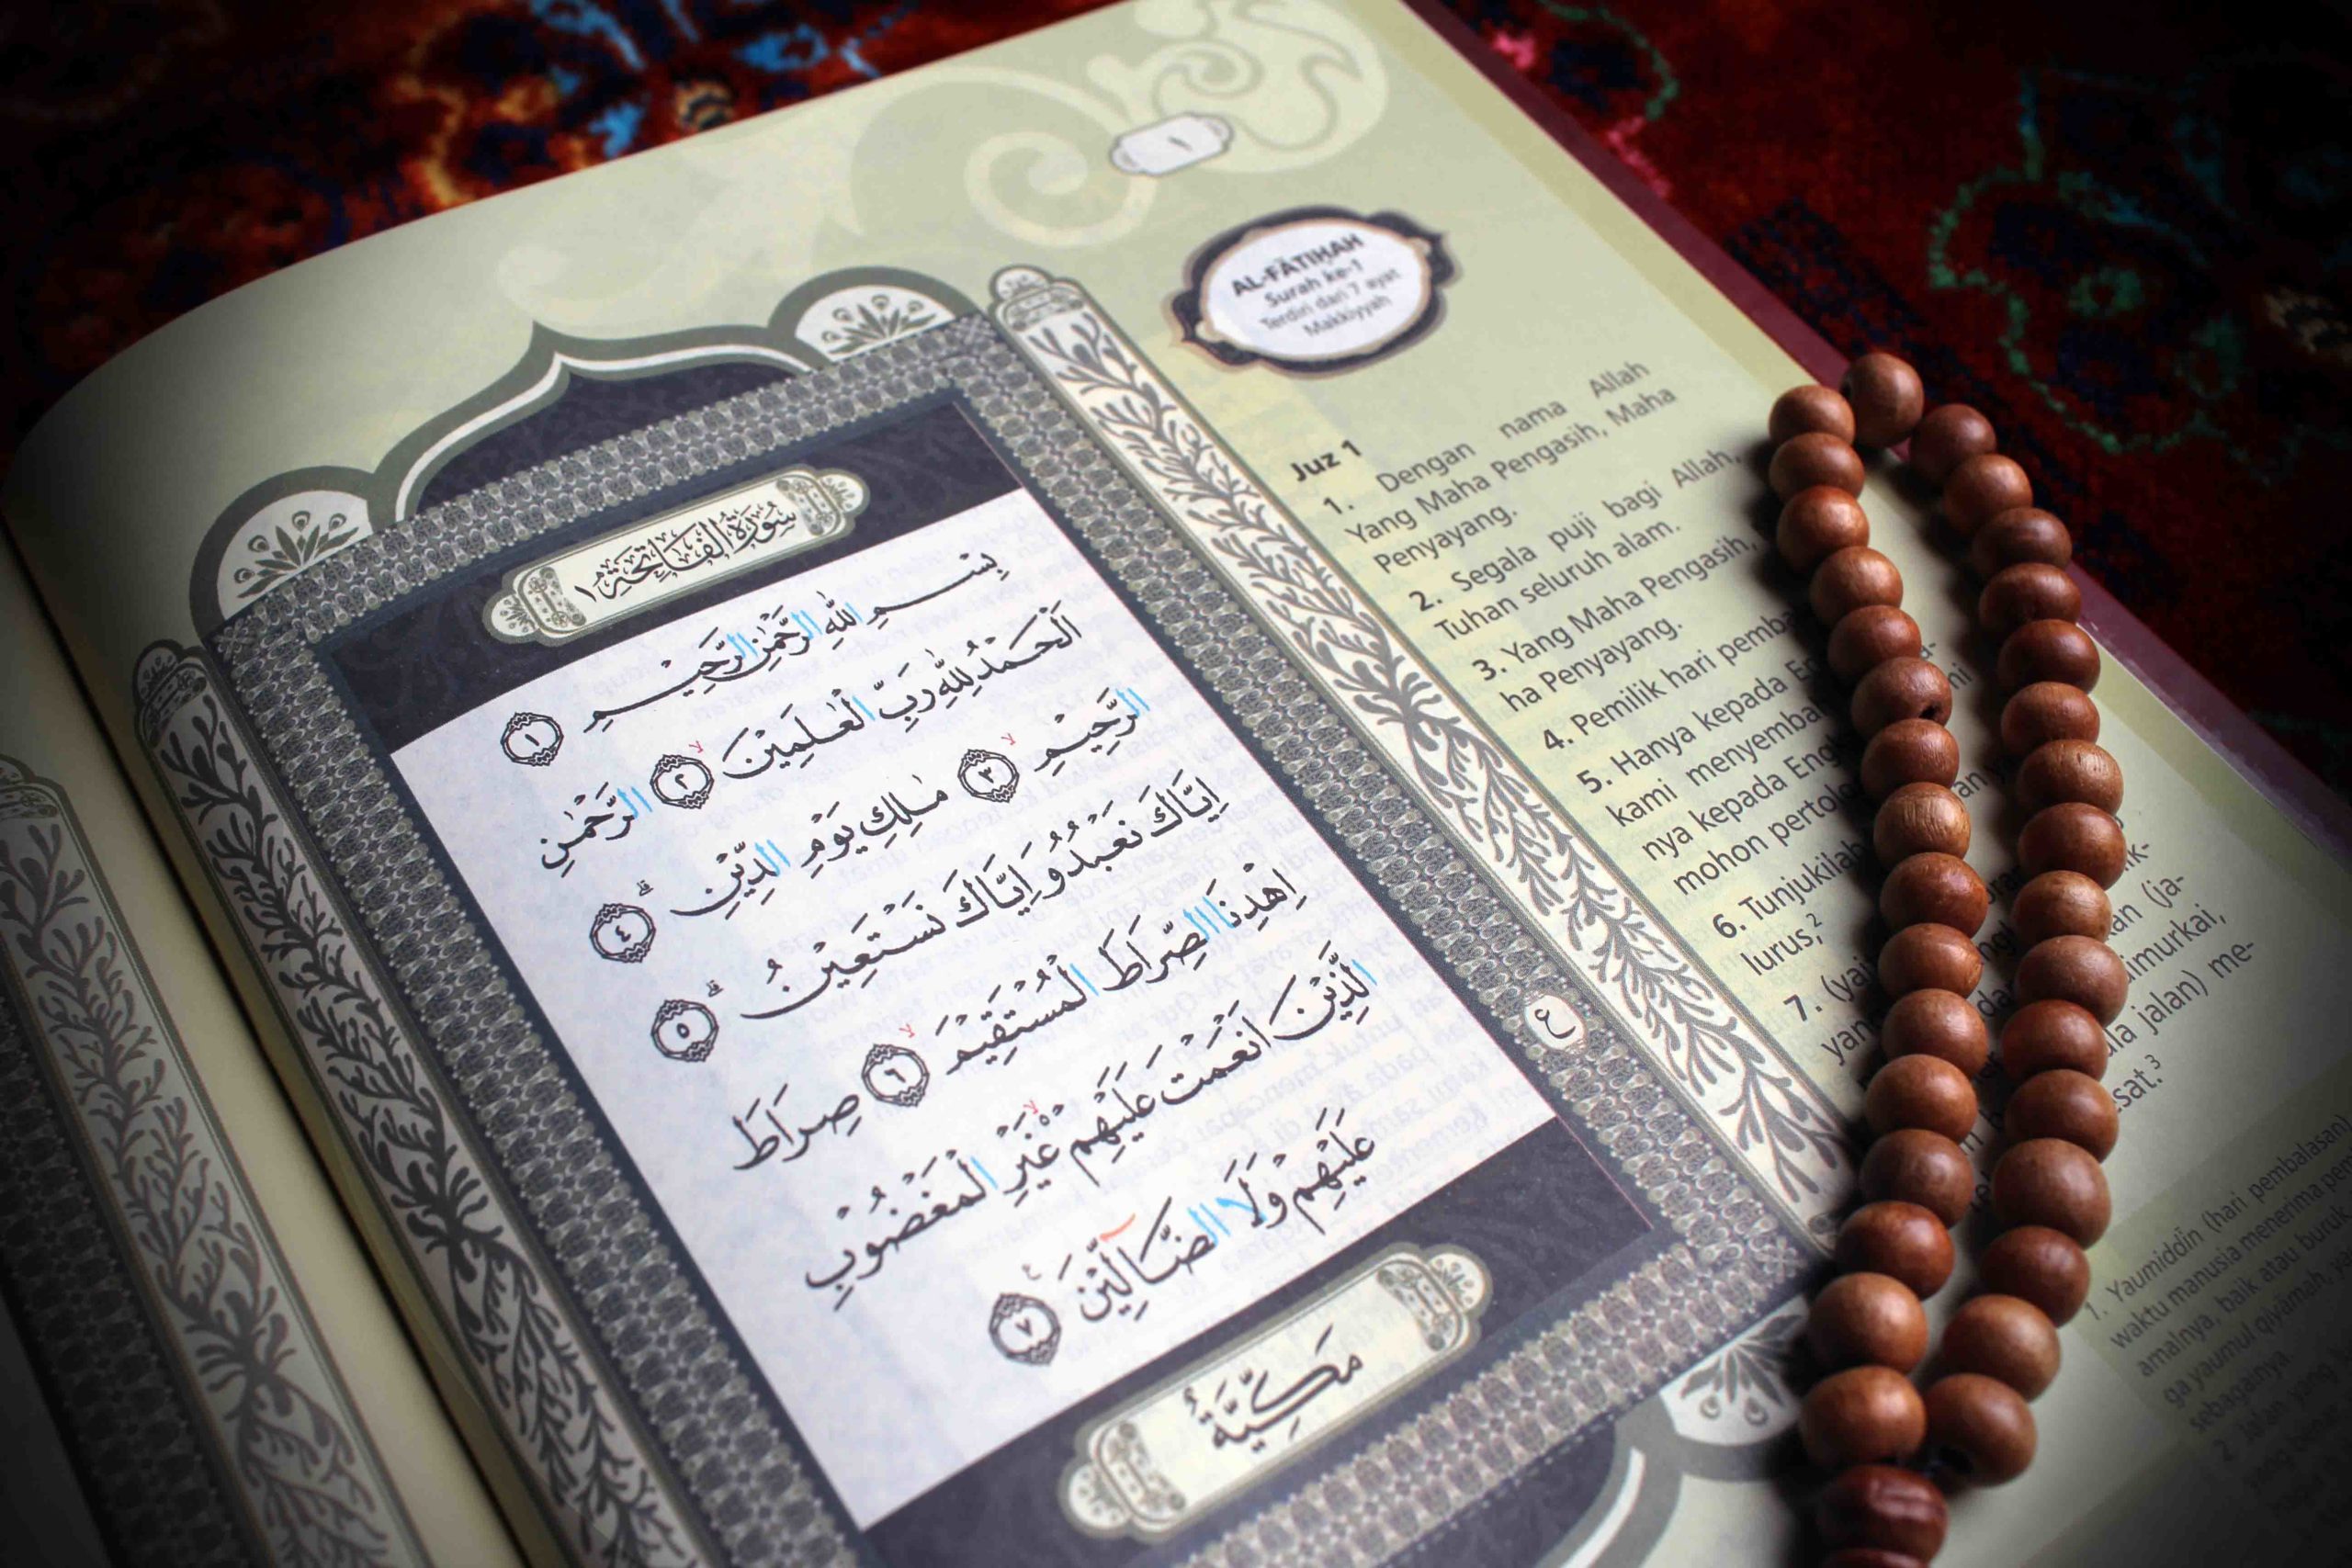 ١
AL-FĀTIḤAH
Surah ke-1
Terdiri dari 7 ayat
Makkiyyah
سُوْرَةُ الْفَاتِحَةِ ١
بِسْمِ اللّٰهِ الرَّحْمٰنِ الرَّحِيْمِ ١
اَلْحَمْدُ لِلّٰهِ رَبِّ الْعٰلَمِيْنَ ۙ ٢ الرَّحْمٰنِ
الرَّحِيْمِ ۙ ٣ مٰلِكِ يَوْمِ الدِّيْنِ ۗ ٤
اِيَّاكَ نَعْبُدُ وَاِيَّاكَ نَسْتَعِيْنُ ۗ ٥
اِهْدِنَا الصِّرَاطَ الْمُسْتَقِيْمَ ۙ ٦ صِرَاطَ
الَّذِيْنَ اَنْعَمْتَ عَلَيْهِمْ ەۙ غَيْرِ الْمَغْضُوْبِ
عَلَيْهِمْ وَلَا الضَّاۤلِّيْنَ ࣖ ٧
مَكِّيَّةٌ
ع
Juz 1
1. Dengan nama Allah
Yang Maha Pengasih, Maha
Penyayang.
2. Segala puji bagi Allah,
Tuhan seluruh alam.
3. Yang Maha Pengasih,
ha Penyayang.
4. Pemilik hari
5. Hanya kepada
kami
nya kepada
mohon
6. Tunjukilah
lurus,²
7.
(ja-
dimurkai,
jalan) me-
1. Yaumiddīn (hari pembalasan)
waktu manusia menerima
amalnya, baik atau
ga yaumul qiyāmah,
sebagainya.
2